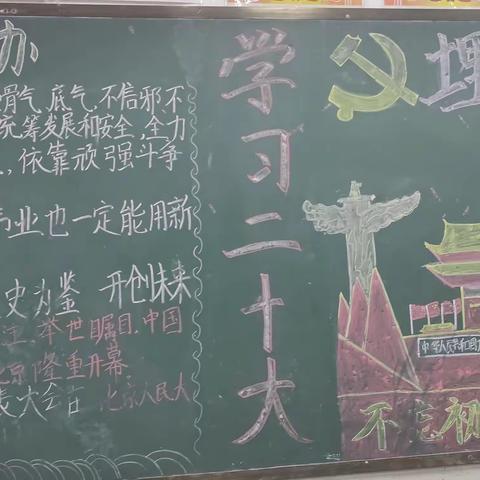 办
骨气、底气,不信邪、不
统筹发展和安全,全力
,依靠顽强斗争
业也一定能用新
史为鉴 开创未来
举世瞩目,中国
北京隆重开幕
表大会在北京人民大
学习二十大
埋
中华人民共和国
不忘初